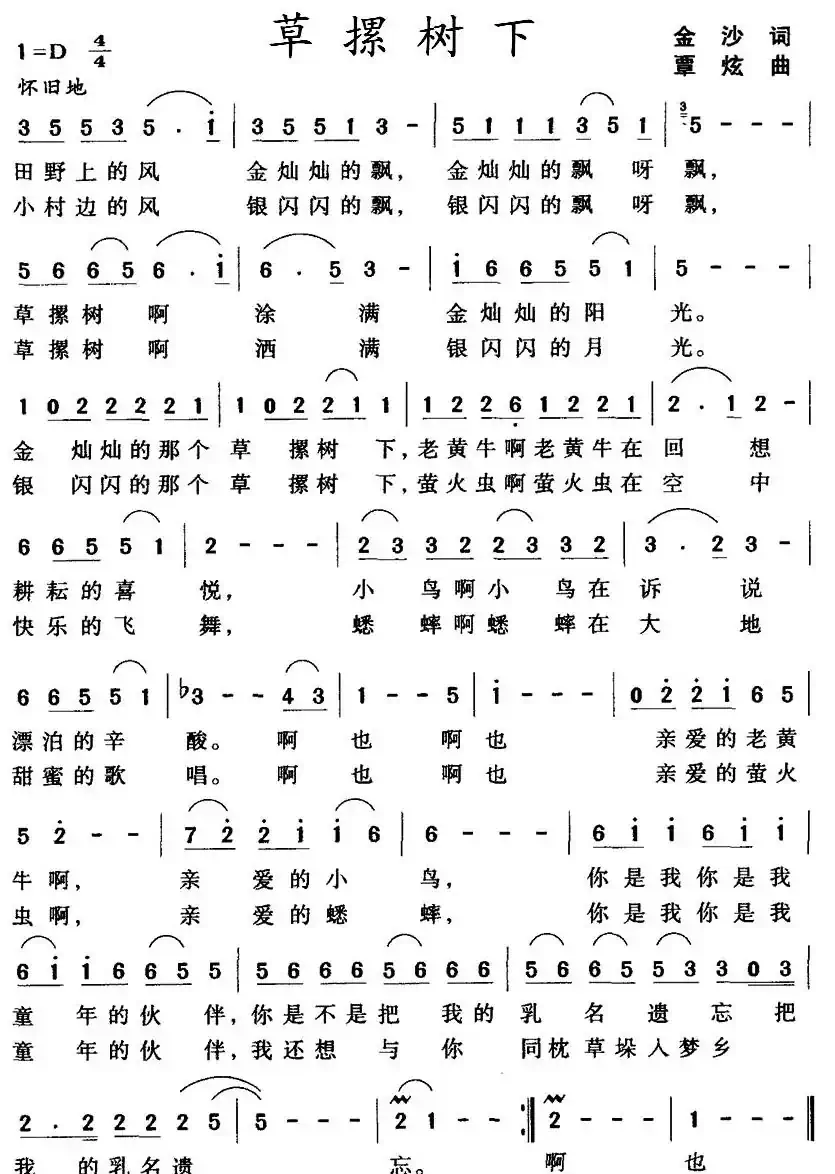 草摞树下
1=D 4/4
金沙词
覃炫曲
怀旧地
3 5 5 3 5 . i | 3 5 5 1 3 - | 5 1 1 1 3 5 1 | 3 5 - - - |
田野上的风 金灿灿的飘, 金灿灿的飘 呀飘,
小村边的风 银闪闪的飘, 银闪闪的飘 呀飘,
5 6 6 5 6 . i | 6 . 5 3 - | i 6 6 5 5 1 | 5 - - - |
草摞树 啊 涂 满 金灿灿的阳 光。
草摞树 啊 洒 满 银闪闪的月 光。
1 0 2 2 2 2 1 | 1 0 2 2 1 1 | 1 2 2 6 1 2 2 1 | 2 . 1 2 - |
金 灿灿的那个 草 摞树 下,老黄牛啊老黄牛在 回 想
银 闪闪的那个 草 摞树 下,萤火虫啊萤火虫在 空 中
6 6 5 5 1 | 2 - - - | 2 3 3 2 2 3 3 2 | 3 . 2 3 - |
耕耘的喜 悦, 小 鸟啊小 鸟在 诉 说
快乐的飞 舞, 蟋 蟀啊蟋 蟀在 大 地
6 6 5 5 1 | ♭3 - - 4 3 | 1 - - 5 | i - - - | 0 2 2 i 6 5 |
漂泊的辛 酸。 啊 也 啊 也 亲爱的老黄
甜蜜的歌 唱。 啊 也 啊 也 亲爱的萤火
5 2 - - | 7 2 2 i i 6 | 6 - - - | 6 i i 6 i i |
牛啊, 亲 爱的小 鸟, 你是我你是我
虫啊, 亲 爱的蟋 蟀, 你是我你是我
6 i i 6 6 5 5 | 5 6 6 6 5 6 6 | 5 6 6 5 5 3 3 0 3 |
童 年的伙 伴,你是不是把 我的 乳 名 遗 忘把
童 年的伙 伴,我还想 与 你 同枕草垛入梦乡
2 . 2 2 2 2 5 | 5 - - | 2 1 - - :‖ 2 - - - | 1 - - ‖
我 的乳名遗 忘。 啊 也